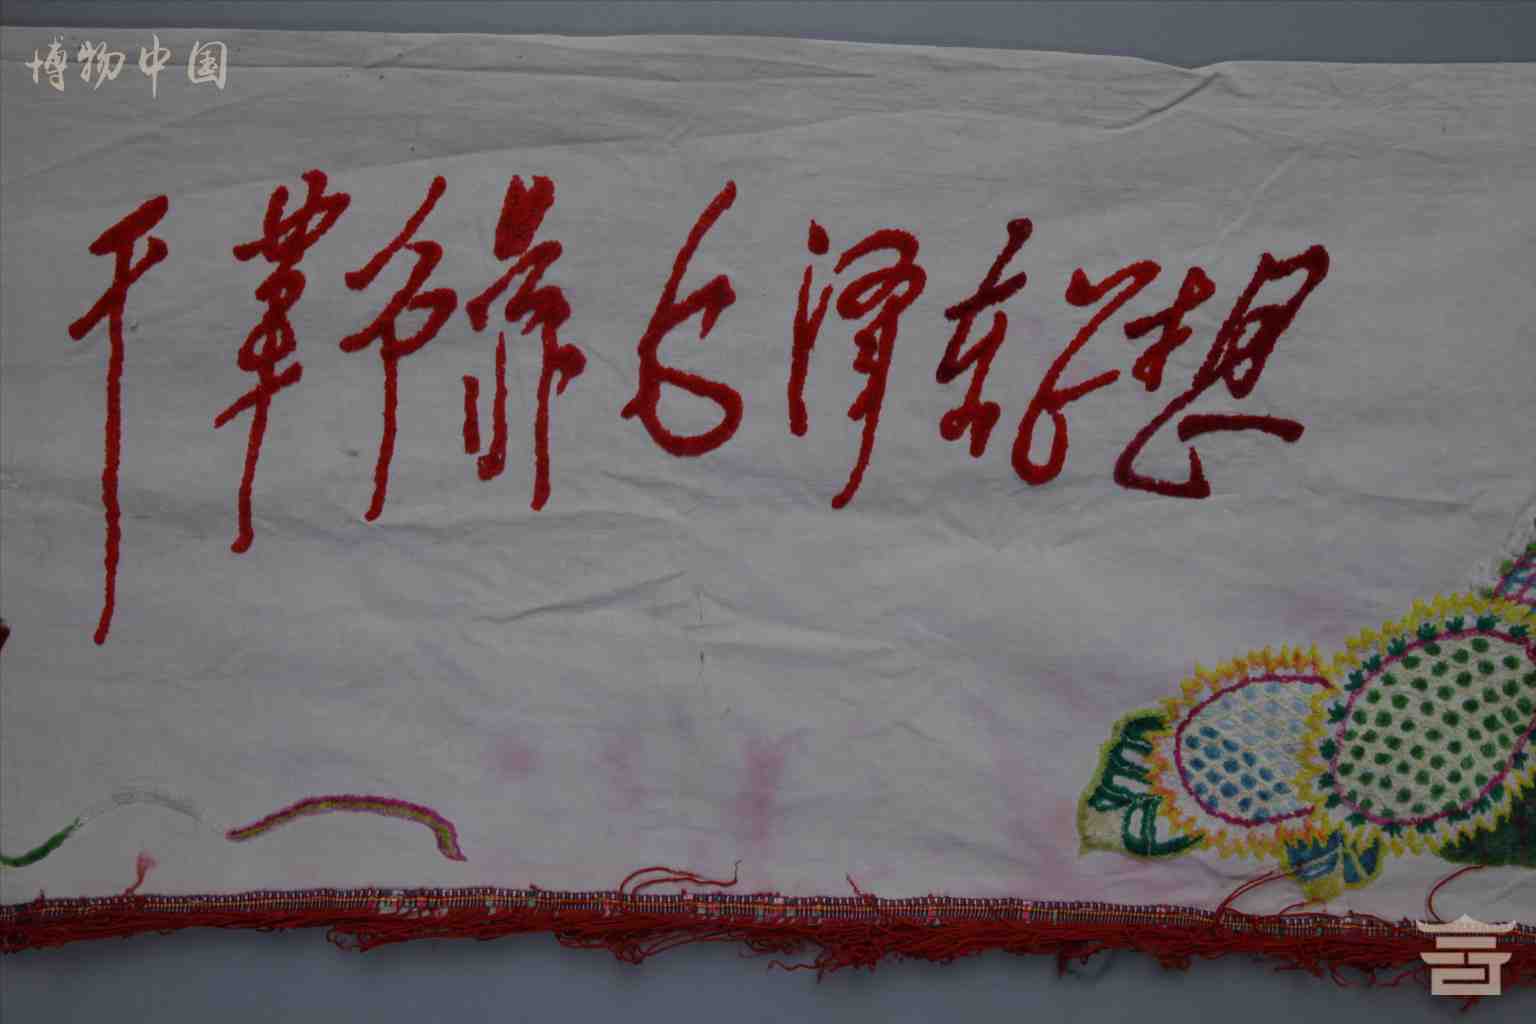 博物中国
干革命靠毛泽东思想